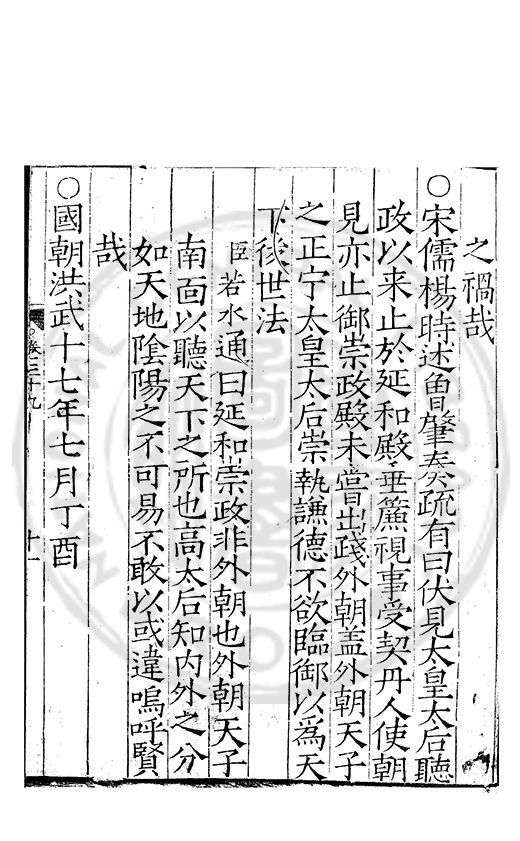 之禍哉
○宋儒楊時述曾肇奏疏有曰伏見太皇太后聽
政以来止於延和殿垂簾視事受契丹人使朝
見亦止御崇政殿未嘗出踐外朝盖外朝天子
之正宁太皇太后崇執謙德不欲臨御以爲天
下後世法
臣若水通曰延和崇政非外朝也外朝天子
南面以聽天下之所也高太后知内外之分
如天地陰陽之不可易不敢以或違嗚呼賢
哉
○國朝洪武十七年七月丁酉
卷三十九
十一